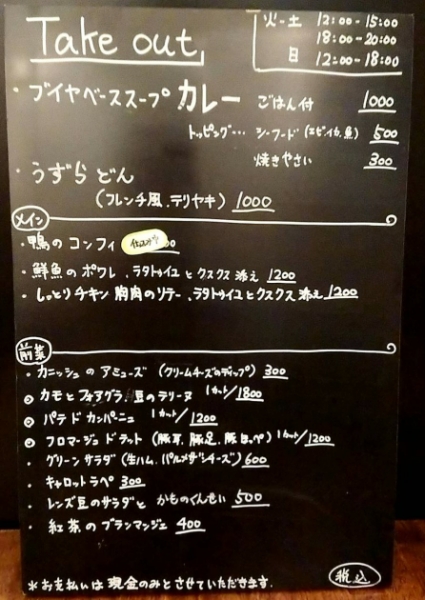 Take out
火-土 12:00-15:00
18:00-20:00
日 12:00-18:00
・ブイヤベーススープカレー ごはん付 1000
トッピング… シーフード(エビ、イカ、魚) 500
焼きやさい 300
・うずらどん
(フレンチ風、テリヤキ) 1000
メイン
・鴨のコンフィ 仕込み中
・鮮魚のポワレ、ラタトゥイユとクスクス添え 1200
・しっとりチキン胸肉のソテー、ラタトゥイユとクスクス添え 1200
前菜
・カニッシュのアミューズ(クリームチーズのディップ) 300
◎カモとフォアグラ、豆のテリーヌ 1カット/1800
◎パテドカンパーニュ 1カット/1200
◎フロマージュドテット(豚耳、豚足、豚ほっぺ) 1カット/1200
・グリーンサラダ(生ハム、パルメザンチーズ) 600
・キャロットラペ 300
・レンズ豆のサラダと かものくんせい 500
・紅茶のブランマンジェ 400
税込
*お支払いは現金のみとさせていただきます.